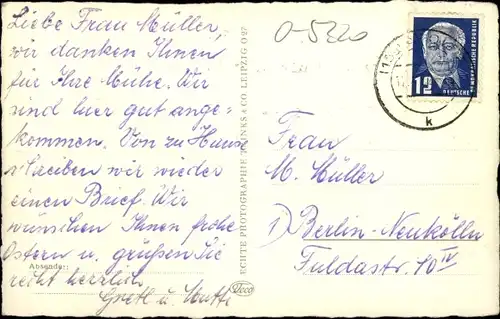 Liebe Frau Müller,
wir danken Ihnen
für Ihre Mühe. Wir
sind hier gut ange-
kommen. Von zu Hause
schreiben wir wieder
einen Brief. Wir
wünschen Ihnen frohe
Ostern u. grüßen Sie
recht herzlich
Gretl u. Mutti
Absender:
ECHTE PHOTOGRAPHIE TRINKS & CO LEIPZIG O 27
Deco
O-5320
12
DEUTSCHE
DEMOKRATISCHE REPUBLIK
k
Frau
M. Müller
1) Berlin-Neukölln
Fuldastr. 10 IV